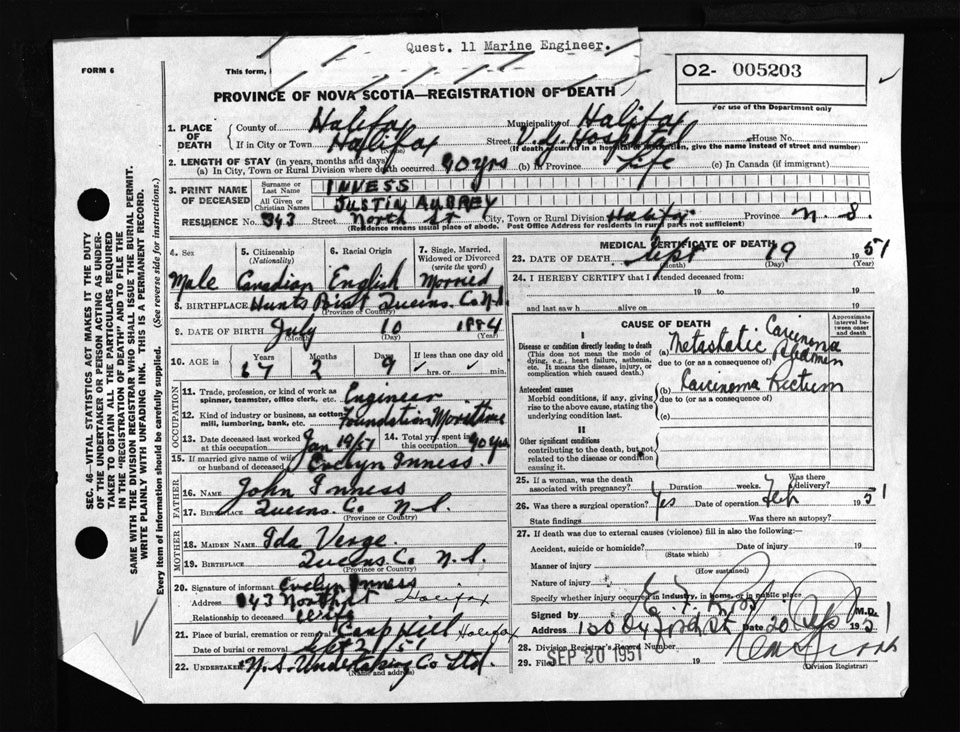 Quest. 11 Marine Engineer.
FORM 6
This form,
02- 005203
For use of the Department only
PROVINCE OF NOVA SCOTIA—REGISTRATION OF DEATH
1. PLACE OF DEATH
County of Halifax Municipality of Halifax
If in City or Town Halifax Street V.G. Hospital House No.
(Name) (If death occurred in a hospital or institution, give the name instead of street and number)
2. LENGTH OF STAY (in years, months and days)
(a) In City, Town or Rural Division where death occurred 40 yrs (b) In Province Life (c) In Canada (if immigrant)
3. PRINT NAME OF DECEASED
Surname or Last Name INNESS
All Given or Christian Names JUSTIN AUBREY
RESIDENCE No. 343 Street North St City, Town or Rural Division Halifax Province N. S.
(Residence means usual place of abode. Post Office Address for residents in rural parts not sufficient)
4. Sex Male
5. Citizenship (Nationality) Canadian
6. Racial Origin English
7. Single, Married, Widowed or Divorced (write the word) Married
8. BIRTHPLACE Hunts Point Queens. Co N.S.
(Province or Country)
9. DATE OF BIRTH July 10 1884
(Month) (Day)
10. AGE in Years 67 Months 2 Days 9 If less than one day old hrs. or min.
OCCUPATION
11. Trade, profession, or kind of work as spinner, teamster, office clerk, etc. Engineer
12. Kind of industry or business, as cotton mill, lumbering, bank, etc. Foundation Maritime
13. Date deceased last worked at this occupation Jan 19/51 14. Total yrs. spent in this occupation 40 yrs
15. If married give name of wife or husband of deceased Evelyn Inness.
FATHER
16. NAME John Inness
17. BIRTHPLACE Queens. Co N. S.
(Province or Country)
MOTHER
18. MAIDEN NAME Ida Verge.
19. BIRTHPLACE Queens. Co N. S.
(Province or Country)
20. Signature of informant Evelyn Inness
Address 343 North St Halifax
Relationship to deceased Wife
21. Place of burial, cremation or removal Camp Hill Halifax
Date of burial or removal Sept 21/51
22. UNDERTAKER N.S. Undertaking Co Ltd.
(Name and address)
MEDICAL CERTIFICATE OF DEATH
23. DATE OF DEATH Sept 19 1951
(Month) (Day) (Year)
24. I HEREBY CERTIFY that I attended deceased from
19 to 19
and last saw h alive on 19
CAUSE OF DEATH
Approximate interval between onset and death
I
Disease or condition directly leading to death
(This does not mean the mode of dying, e.g., heart failure, asthenia, etc. It means the disease, injury, or complication which caused death.)
(a) Metastatic Carcinoma
due to (or as a consequence of)
Antecedent causes
Morbid conditions, if any, giving rise to the above cause, stating the underlying condition last.
(b) Carcinoma Rectum
due to (or as a consequence of)
(c)
II
Other significant conditions
contributing to the death, but not related to the disease or condition causing it.
25. If a woman, was the death associated with pregnancy? Duration weeks? Was there delivery?
26. Was there surgical operation? Yes Date of operation Feb 1951
State findings Was there an autopsy?
27. If death was due to external causes (violence) fill in also the following:
Accident, suicide or homicide? Date of injury 19
(State which)
Manner of injury
(How sustained)
Nature of injury
Specify whether injury occurred in industry, in home, or in public place
Signed by M.D.
Address 150 Oxford St Date 20 Sep 1951
28. Division Registrar's Record Number
29. Filed SEP 20 1951 19
(Division Registrar)
SEC. 46—VITAL STATISTICS ACT MAKES IT THE DUTY OF THE UNDERTAKER OR PERSON ACTING AS UNDERTAKER TO OBTAIN ALL THE PARTICULARS REQUIRED IN THE "REGISTRATION OF DEATH" AND TO FILE THE SAME WITH THE DIVISION REGISTRAR WHO SHALL ISSUE THE BURIAL PERMIT.
WRITE PLAINLY WITH UNFADING INK. THIS IS A PERMANENT RECORD.
Every item of information should be carefully supplied. (See reverse side for instructions.)